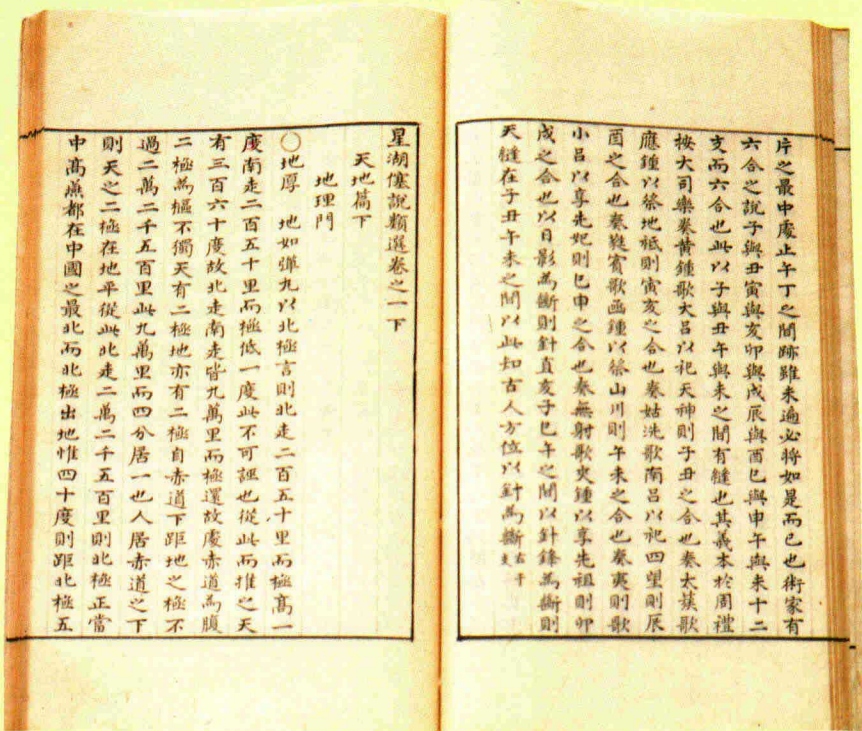 片之最中處止午丁之間跡雖未遍必將如是而已也術家有
六合之說子與丑寅與亥卯與戌辰與酉巳與申午與未十二
支而六合也此以子與丑午與未之間有縫也其義本於周禮
按大司樂奏黃鍾歌大呂以祀天神則子丑之合也奏太蔟歌
應鍾以祭地祗則寅亥之合也奏姑洗歌南呂以祀四望則辰
酉之合也奏蕤賓歌函鍾以祭山川則午未之合也奏夷則歌
小呂以享先妣則巳申之合也奏無射歌夾鍾以享先祖則卯
戌之合也以日影為斷則針直亥子巳午之間以針鋒為斷則
天縫在子丑午未之間以此知古人方位以針為斷
星湖僿說類選卷之一下
天地篇下
地理門
○地厚 地如彈丸以北極言則北走二百五十里而極高一
度南走二百五十里而極低一度此不可誣也從此而推之天
有三百六十度故北走南走皆九萬里而極還故處赤道為腹
二極為樞不獨天有二極地亦有二極自赤道下距地之極不
過二萬二千五百里此九萬里而四分居一也人居赤道之下
則天之二極在地平從此北走二萬二千五百里則北極正當
中高燕都在中國之最北而北極出地惟四十度則距北極五